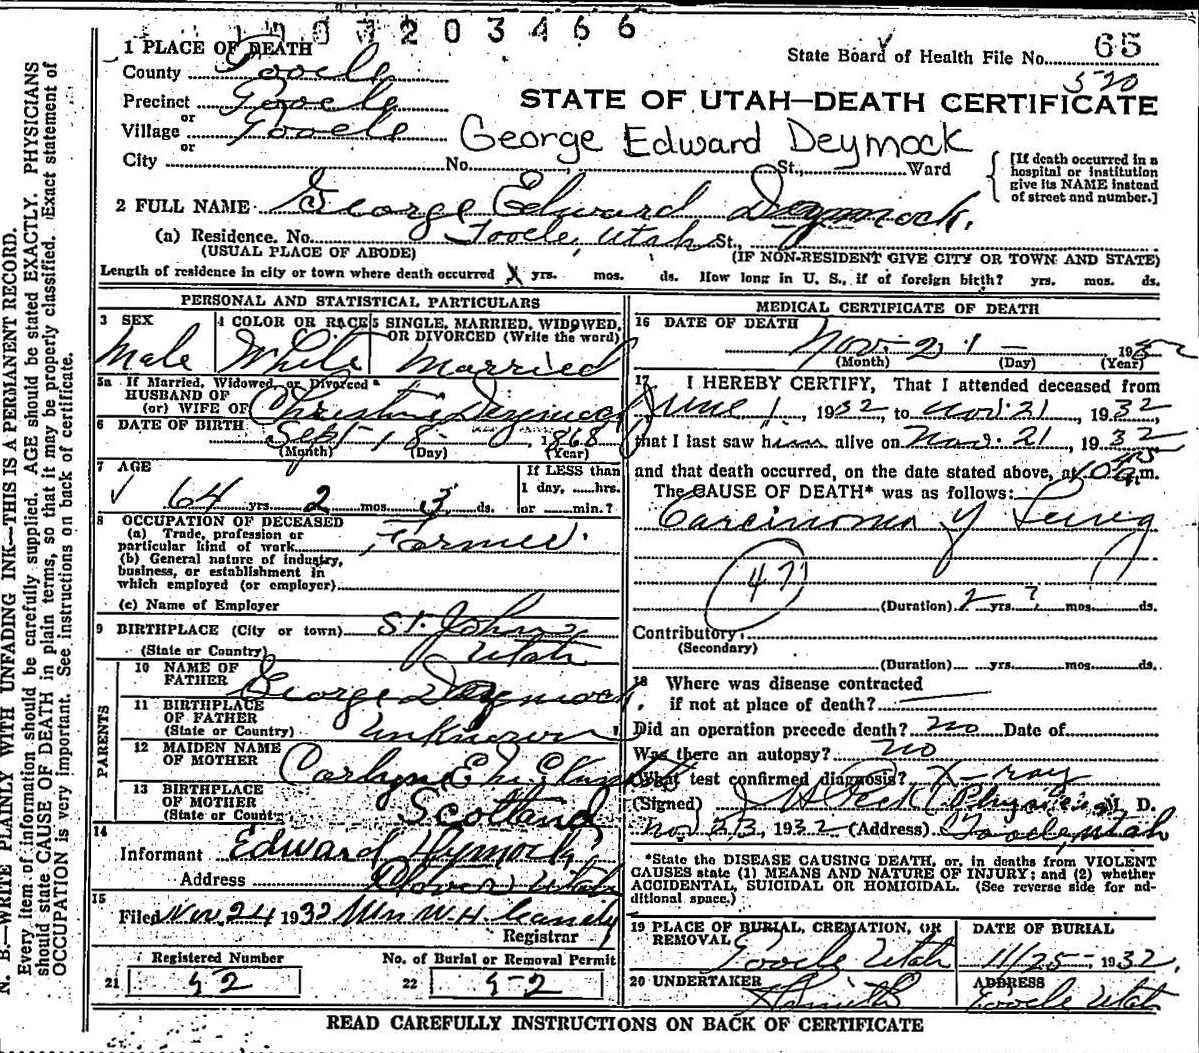 1007203466
State Board of Health File No. 65
520
1 PLACE OF DEATH
County Tooele
Precinct Tooele
or
Village Tooele
or
City No. St., Ward
STATE OF UTAH—DEATH CERTIFICATE
George Edward Deymock
[If death occurred in a
hospital or institution
give its NAME instead
of street and number.]
2 FULL NAME George Edward Deymock.
(a) Residence. No. Tooele, Utah St.,
(USUAL PLACE OF ABODE) (IF NON-RESIDENT GIVE CITY OR TOWN AND STATE)
Length of residence in city or town where death occurred X yrs. mos. ds. How long in U. S., if of foreign birth? yrs. mos. ds.
PERSONAL AND STATISTICAL PARTICULARS
3 SEX
Male
4 COLOR OR RACE
White
5 SINGLE, MARRIED, WIDOWED,
OR DIVORCED (Write the word)
Married
5a If Married, Widowed, or Divorced
HUSBAND OF
(or) WIFE OF Christine Deymock
6 DATE OF BIRTH Sept 18 1868
(Month) (Day) (Year)
7 AGE
64 yrs. 2 mos. 3 ds.
If LESS than
1 day, hrs.
or min.?
8 OCCUPATION OF DECEASED
(a) Trade, profession or
particular kind of work Farmer.
(b) General nature of industry,
business, or establishment in
which employed (or employer)
(c) Name of Employer
9 BIRTHPLACE (City or town) St. Johns
(State or Country) Utah
PARENTS
10 NAME OF
FATHER George Deymock
11 BIRTHPLACE
OF FATHER
(State or Country) Unknown
12 MAIDEN NAME
OF MOTHER
13 BIRTHPLACE
OF MOTHER
(State or Country) Scotland
14
Informant Edward Dymock
Address Clover Utah
15
Filed Nov. 24 1932 W.H.
Registrar
Registered Number
21 52
No. of Burial or Removal Permit
22 52
MEDICAL CERTIFICATE OF DEATH
16 DATE OF DEATH
Nov - 21 - 1932
(Month) (Day) (Year)
17 I HEREBY CERTIFY, That I attended deceased from
June 1, 1932 to Nov. 21, 1932
that I last saw him alive on Nov. 21, 1932
and that death occurred, on the date stated above, at 10 m.
The CAUSE OF DEATH* was as follows:
Carcinoma of Lung
47
(Duration) 2 yrs. ? mos. ds.
Contributory
(Secondary)
(Duration) yrs. mos. ds.
18 Where was disease contracted
if not at place of death?
Did an operation precede death? no Date of
Was there an autopsy? no
What test confirmed diagnosis? X-ray
(Signed) J H Peck (Physician) M. D.
Nov 23, 1932 (Address) Tooele, Utah
*State the DISEASE CAUSING DEATH, or, in deaths from VIOLENT
CAUSES state (1) MEANS AND NATURE OF INJURY; and (2) whether
ACCIDENTAL, SUICIDAL OR HOMICIDAL. (See reverse side for ad-
ditional space.)
19 PLACE OF BURIAL, CREMATION, OR
REMOVAL
Tooele Utah
DATE OF BURIAL
11/25-1932.
20 UNDERTAKER
ADDRESS
Tooele Utah
READ CAREFULLY INSTRUCTIONS ON BACK OF CERTIFICATE
N. B.—WRITE PLAINLY WITH UNFADING INK—THIS IS A PERMANENT RECORD.
Every item of information should be carefully supplied. AGE should be stated EXACTLY. PHYSICIANS
should state CAUSE OF DEATH in plain terms, so that it may be properly classified. Exact statement of
OCCUPATION is very important. See instructions on back of certificate.